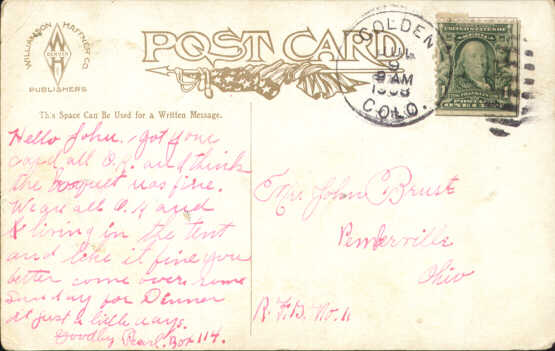 WILLIAMSON HAFFNER CO.
DENVER
PUBLISHERS
POST CARD
GOLDEN
JUL
9
8 AM
1908
COLO.
This Space Can Be Used for a Written Message.
Hello John. got your
card all O.K. and think
the bosquet was fine.
We are all O.K and
living in the tent
and like it fine you
better come over some
Sunday for Denner
it just a little ways.
Goodby Pearl. Box 114.
John Brust
Pemberville
Ohio
R.F.D. No. 1